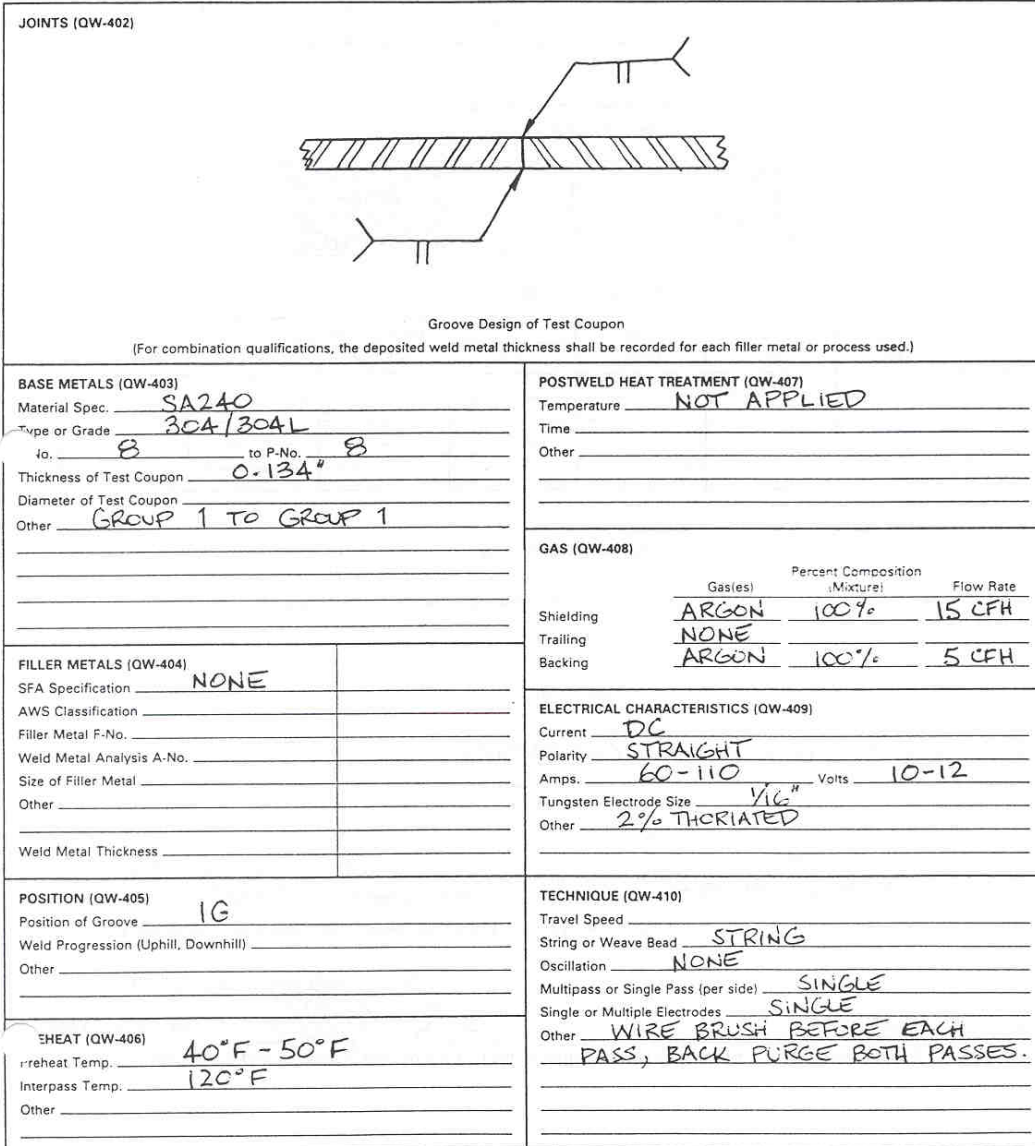 JOINTS (QW-402)
Groove Design of Test Coupon
(For combination qualifications, the deposited weld metal thickness shall be recorded for each filler metal or process used.)
BASE METALS (QW-403)
Material Spec. SA240
Type or Grade 304/304L
No. 8 to P-No. 8
Thickness of Test Coupon 0.134"
Diameter of Test Coupon
Other GROUP 1 TO GROUP 1
FILLER METALS (QW-404)
SFA Specification NONE
AWS Classification
Filler Metal F-No.
Weld Metal Analysis A-No.
Size of Filler Metal
Other
Weld Metal Thickness
POSITION (QW-405)
Position of Groove 1G
Weld Progression (Uphill, Downhill)
Other
EHEAT (QW-406)
Preheat Temp. 40°F - 50°F
Interpass Temp. 120°F
Other
POSTWELD HEAT TREATMENT (QW-407)
Temperature NOT APPLIED
Time
Other
GAS (QW-408)
Percent Composition
Gas(es) (Mixture) Flow Rate
Shielding ARGON 100% 15 CFH
Trailing NONE
Backing ARGON 100% 5 CFH
ELECTRICAL CHARACTERISTICS (QW-409)
Current DC
Polarity STRAIGHT
Amps. 60-110 Volts 10-12
Tungsten Electrode Size 1/16"
Other 2% THORIATED
TECHNIQUE (QW-410)
Travel Speed
String or Weave Bead STRING
Oscillation NONE
Multipass or Single Pass (per side) SINGLE
Single or Multiple Electrodes SINGLE
Other WIRE BRUSH BEFORE EACH
PASS, BACK PURGE BOTH PASSES.